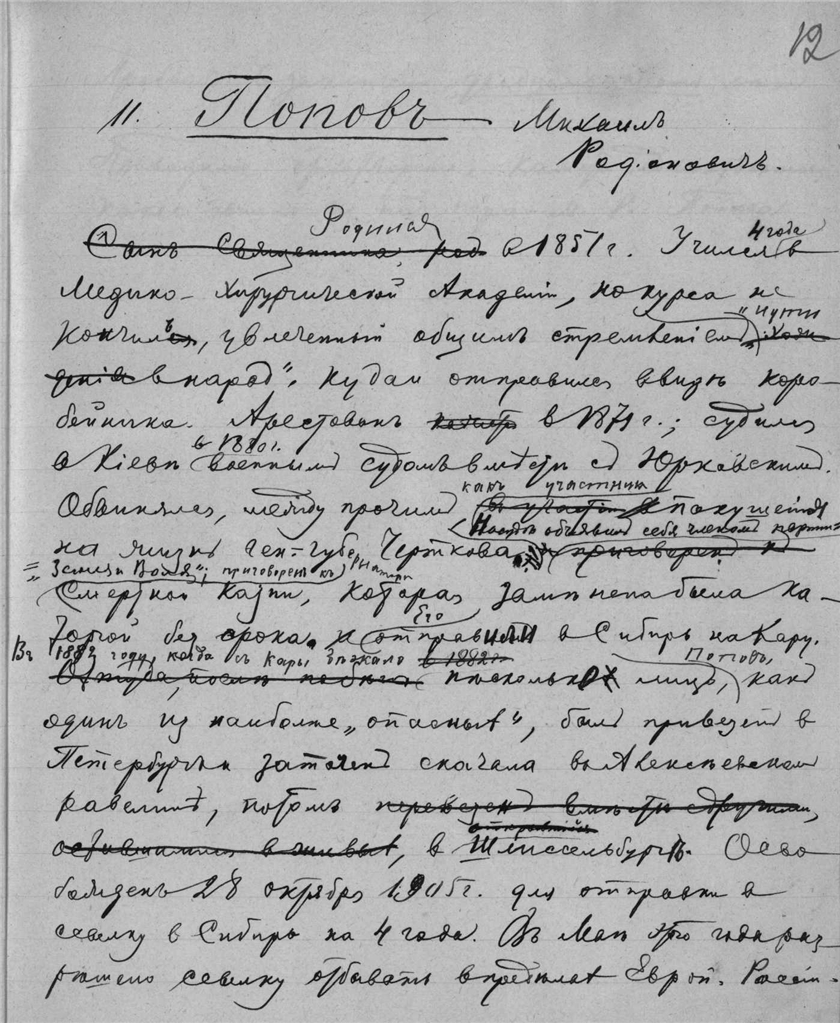 12
11. Поповъ Михаилъ
Родіоновичъ.
Родился
Сынъ священника, род в 1851 г. Учился 4 года в
Медико-Хирургической Академіи, но курса не
кончилъ, увлеченный общимъ стремленіемъ "итти
в народ", куда и отправился в видѣ коро-
бейника. Арестованъ в 1879 г.; судился
в 1880 г.
в Кіевѣ военнымъ судомъ вмѣстѣ съ Юрковскимъ.
какъ участникъ
Обвинялся, между прочимъ в участіи покушенія
На судѣ объявилъ себя членом партіи
на жизнь ген-губернатора Черткова, и приговоренъ къ
"Земля и Воля"; приговоренъ къ
смертной казни, которая замѣнена была ка-
Его
торгой без срока. и отправили в Сибирь на Кару.
Въ 1882 году, когда съ Кары бѣжало в 1882 г. Поповъ,
Оттуда, послѣ побѣга нѣсколько лицъ, как
один из наиболѣе "опасных", был привезенъ в
Петербургъ и заточенъ сначала въ Алексѣевскомъ
равелинѣ, потомъ переведенъ вмѣстѣ с другими,
оставшимися в живых, в Шлиссельбургѣ. Осво-
божденъ 28 октября 1905 г. для отправки в
ссылку в Сибирь на 4 года. Въ Маѣ этого года раз-
рѣшено ссылку отбывать в предѣлах Европ. Россіи.